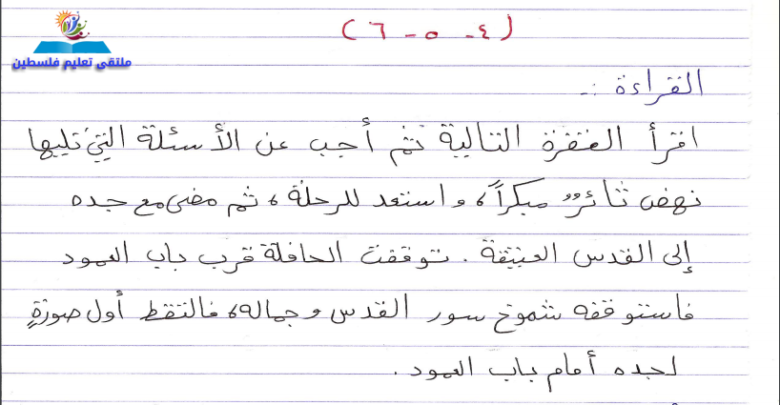 (٤ - ٥ - ٦)
ملتقى تعليم فلسطين
القراءة :-
اقرأ الفقرة التالية ثم أجب عن الأسئلة التي تليها
نهض ثائرٌ مبكراً، واستعد للرحلة، ثم مضى مع جده
إلى القدس العتيقة. توقفت الحافلة قرب باب العمود
فاستوقفه شموخ سور القدس وجماله، فالتقط أول صورةٍ
لجده أمام باب العمود.